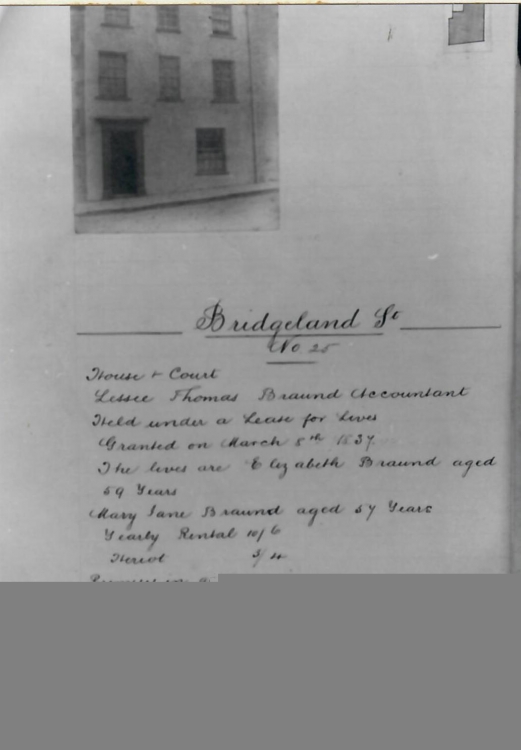 Bridgeland St
No 25
House + Court
Lessee Thomas Braund Accountant
Held under a Lease for Lives
Granted on March 5th 1837
The lives are Elizabeth Braund aged
59 Years
Mary Jane Braund aged 57 Years
Yearly Rental 10/6
Heriot 3/4